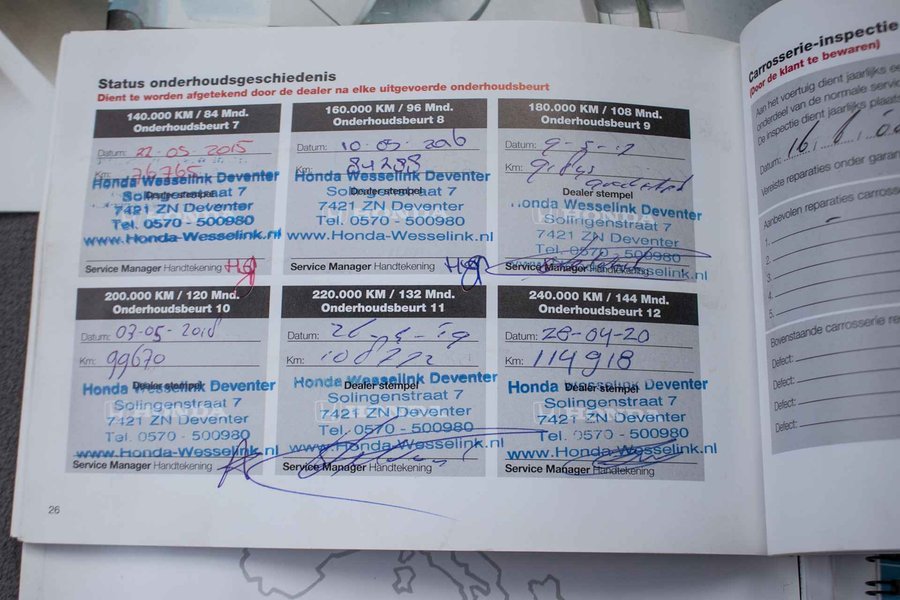 Status onderhoudsgeschiedenis
Dient te worden afgetekend door de dealer na elke uitgevoerde onderhoudsbeurt
140.000 KM / 84 Mnd.
Onderhoudsbeurt 7
Datum: 22-05-2015
Km: 76765
Honda Wesselink Deventer
Dealer stempel
Solingenstraat 7
7421 ZN Deventer
Tel. 0570 - 500980
www.Honda-Wesselink.nl
Service Manager Handtekening
160.000 KM / 96 Mnd.
Onderhoudsbeurt 8
Datum: 10-05-2016
Km: 84288
Honda Wesselink Deventer
Dealer stempel
Solingenstraat 7
7421 ZN Deventer
Tel. 0570 - 500980
www.Honda-Wesselink.nl
Service Manager Handtekening
180.000 KM / 108 Mnd.
Onderhoudsbeurt 9
Datum: 9-5-17
Km:
Dealer stempel
Honda Wesselink Deventer
HONDA
Solingenstraat 7
7421 ZN Deventer
Tel. 0570 - 500980
www.Honda-Wesselink.nl
Service Manager Handtekening
200.000 KM / 120 Mnd.
Onderhoudsbeurt 10
Datum: 03-05-2018
Km: 99670
Honda Wesselink Deventer
Dealer stempel
Solingenstraat 7
HONDA
7421 ZN Deventer
Tel. 0570 - 500980
www.Honda-Wesselink.nl
Service Manager Handtekening
220.000 KM / 132 Mnd.
Onderhoudsbeurt 11
Datum:
Km: 108222
Honda Wesselink Deventer
Dealer stempel
Solingenstraat 7
7421 ZN Deventer
Tel. 0570 - 500980
www.Honda-Wesselink.nl
Service Manager Handtekening
240.000 KM / 144 Mnd.
Onderhoudsbeurt 12
Datum: 28-04-20
Km: 114918
Honda Wesselink Deventer
Dealer stempel
Solingenstraat 7
7421 ZN Deventer
Tel. 0570 - 500980
www.Honda-Wesselink.nl
Service Manager Handtekening
26
Carrosserie-inspectie
(Door de klant te bewaren)
Aan het voertuig dient jaarlijks
onderdeel van de normale
De inspectie dient jaarlijks
Datum: 16
Vereiste reparaties onder
Aanbevolen reparaties
1.
2.
3.
4.
5.
Bovenstaande carrosserie
Defect:
Defect:
Defect:
Defect: